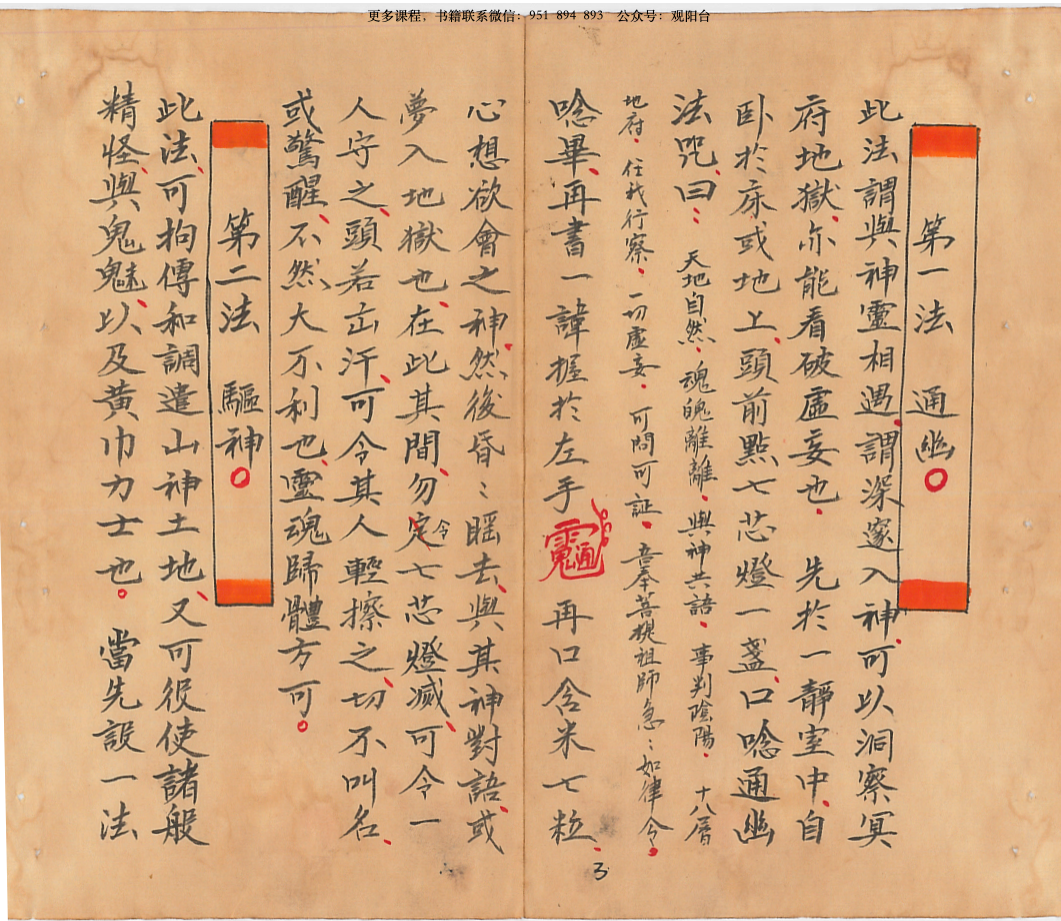 更多课程，书籍联系微信：951 894 893　公众号：观阳台
第一法　通幽
此法謂與神靈相遇、謂深邃入神、可以洞察冥
府地獄、亦能看破虛妄也、先於一靜室中、自
卧於床或地上、頭前點七芯燈一盞、口唸通幽
法咒、曰：天地自然、魂魄離離、與神共語、事判陰陽、十八層
地府、任我行察、一切虛妄、可問可証、吾奉菩提祖師急：如律令。
唸畢、再書一諱握於左手 再口含米七粒、
心想欲會之神、然後昏：睡去、與其神對語、或
夢入地獄也、在此其間、勿令七芯燈滅、可令一
人守之、頭若出汗、可令其人輕擦之、切不叫名、
或驚醒、不然、大不利也、靈魂歸體方可。
第二法　驅神
此法、可拘傳和調遣山神土地、又可役使諸般
精怪與鬼魅、以及黃巾力士也。當先設一法
3